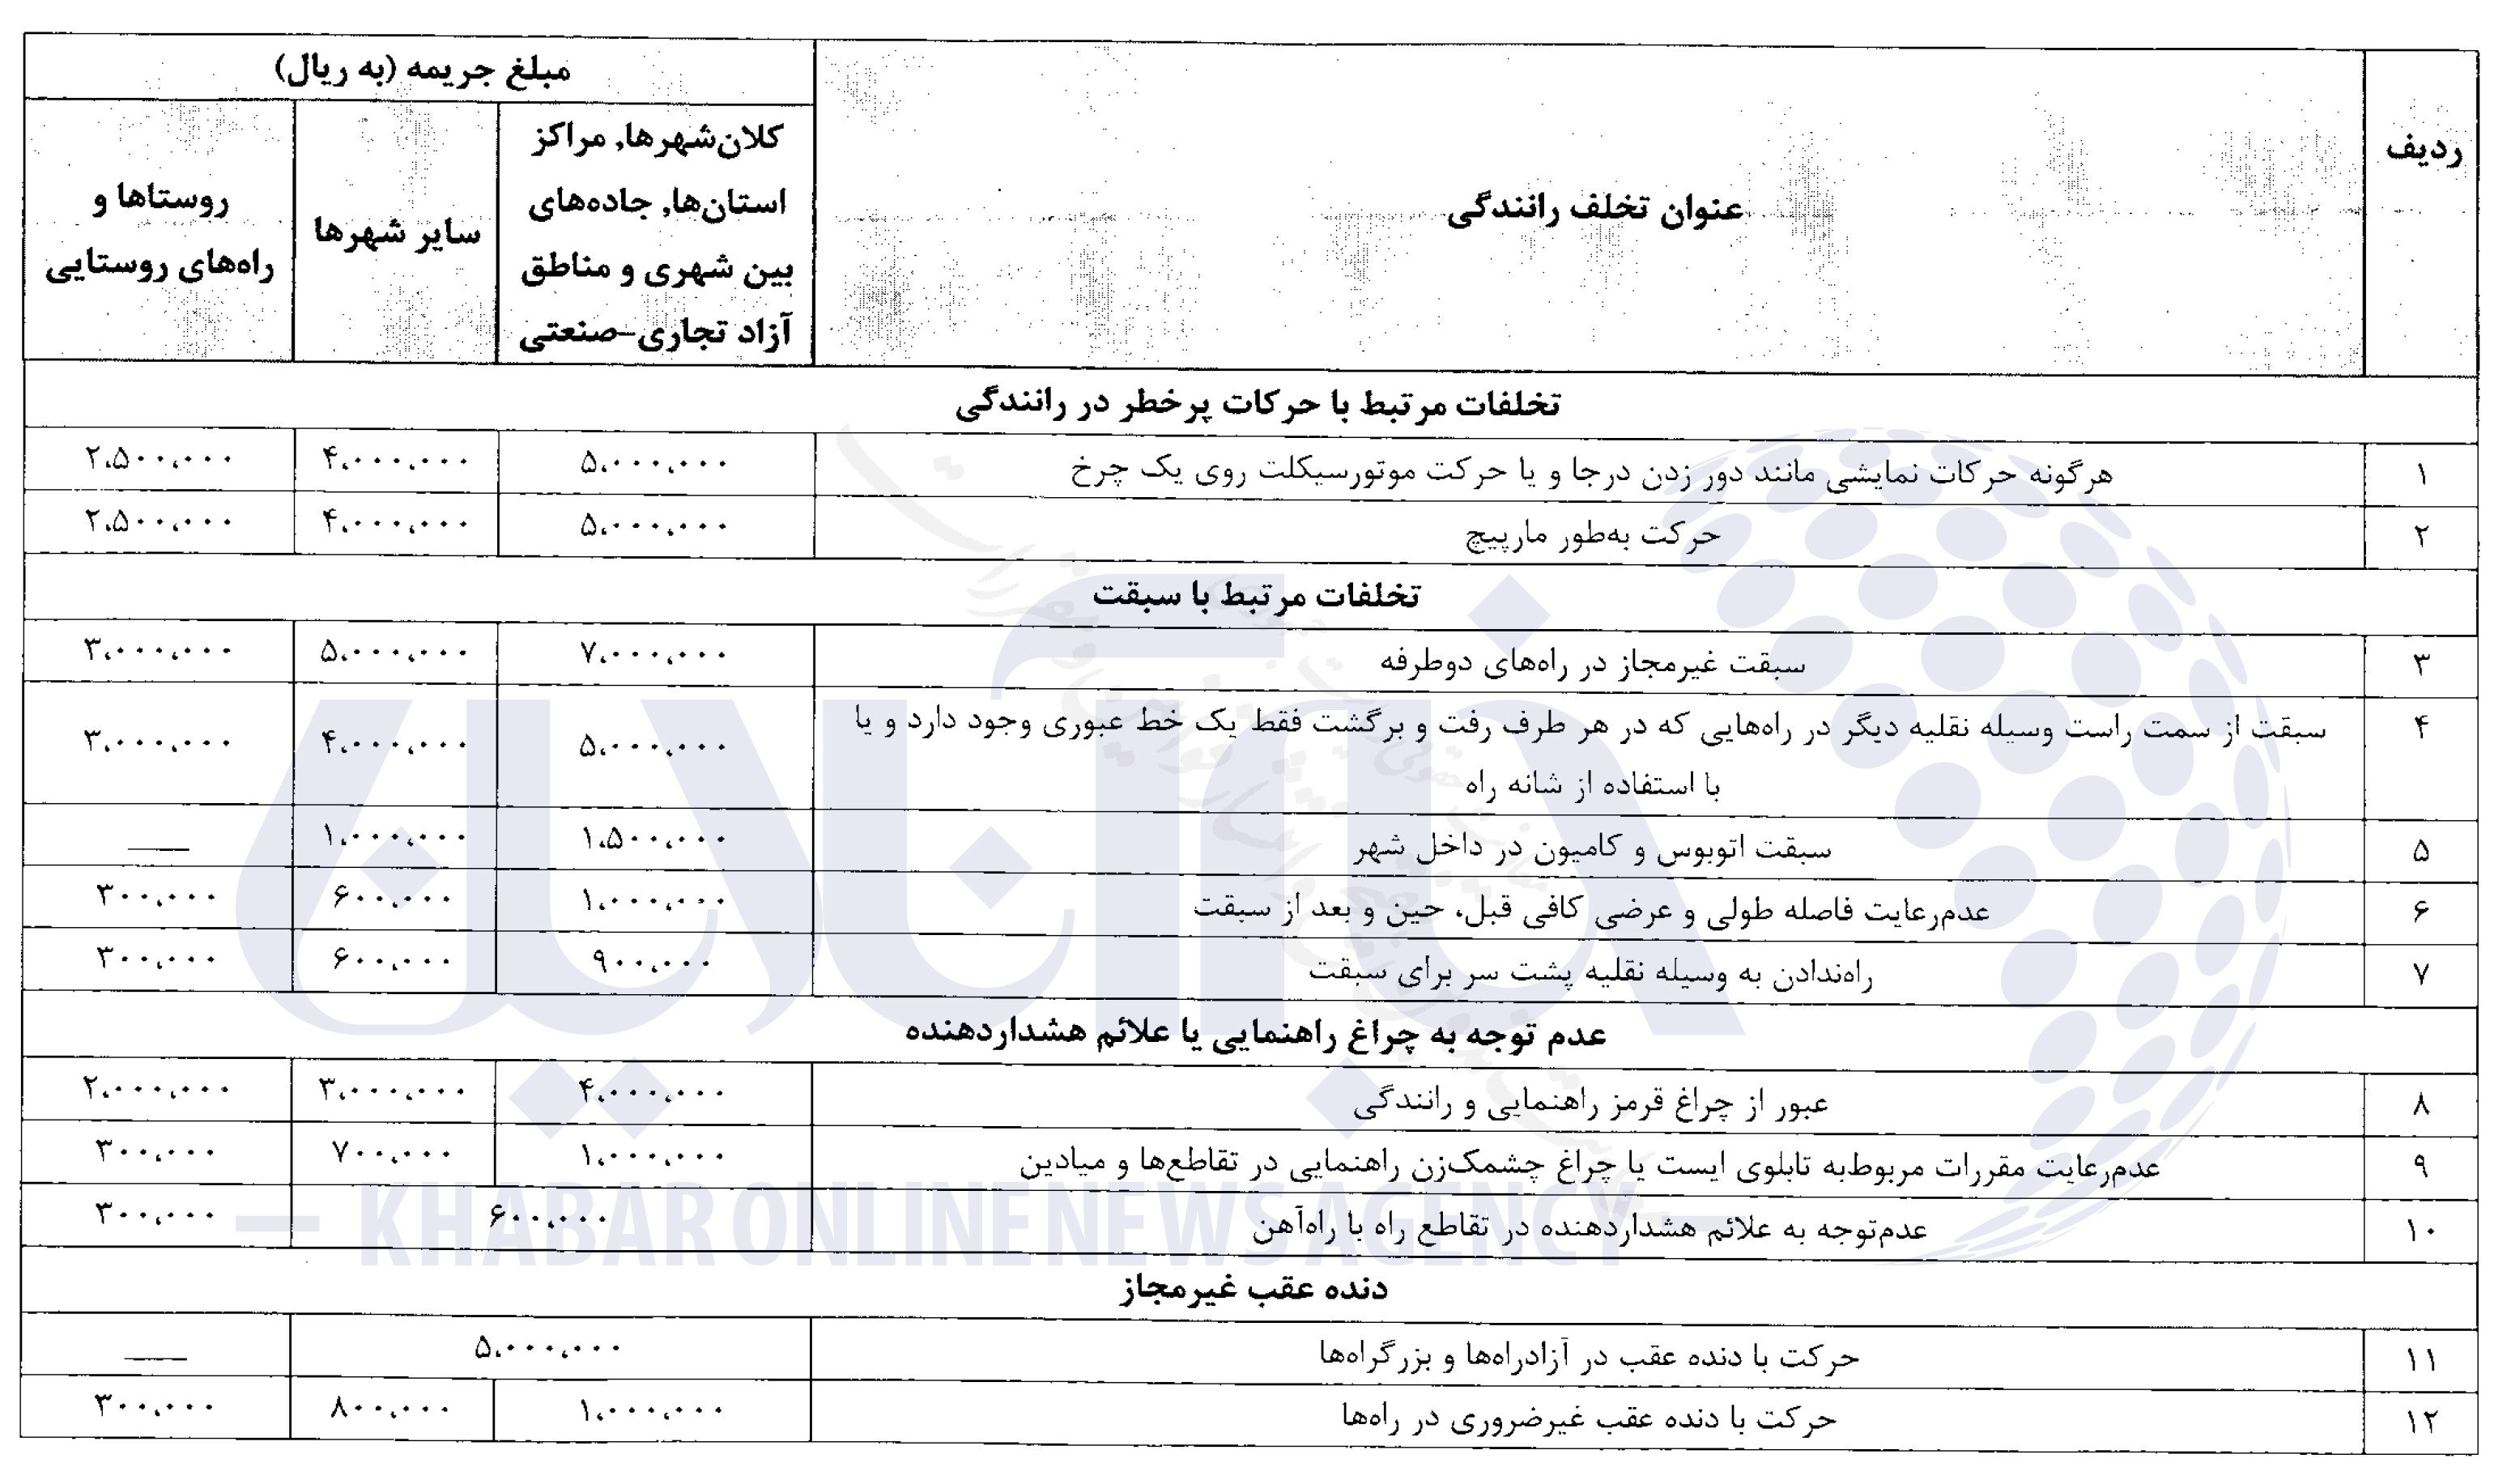 ردیف
عنوان تخلف رانندگی
مبلغ جریمه (به ریال)
کلان‌شهرها، مراکز
استان‌ها، جاده‌های
بین شهری و مناطق
آزاد تجاری-صنعتی
سایر شهرها
روستاها و
راه‌های روستایی
تخلفات مرتبط با حرکات پرخطر در رانندگی
۱ هرگونه حرکات نمایشی مانند دور زدن درجا و یا حرکت موتورسیکلت روی یک چرخ ۵،۰۰۰،۰۰۰ ۴،۰۰۰،۰۰۰ ۲،۵۰۰،۰۰۰
۲ حرکت به‌طور مارپیچ ۵،۰۰۰،۰۰۰ ۴،۰۰۰،۰۰۰ ۲،۵۰۰،۰۰۰
تخلفات مرتبط با سبقت
۳ سبقت غیرمجاز در راه‌های دوطرفه ۷،۰۰۰،۰۰۰ ۵،۰۰۰،۰۰۰ ۳،۰۰۰،۰۰۰
۴ سبقت از سمت راست وسیله نقلیه دیگر در راه‌هایی که در هر طرف رفت و برگشت فقط یک خط عبوری وجود دارد و یا
با استفاده از شانه راه ۵،۰۰۰،۰۰۰ ۴،۰۰۰،۰۰۰ ۳،۰۰۰،۰۰۰
۵ سبقت اتوبوس و کامیون در داخل شهر ۱،۵۰۰،۰۰۰ ۱،۰۰۰،۰۰۰ ——
۶ عدم‌رعایت فاصله طولی و عرضی کافی قبل، حین و بعد از سبقت ۱،۰۰۰،۰۰۰ ۶۰۰،۰۰۰ ۳۰۰،۰۰۰
۷ راه‌ندادن به وسیله نقلیه پشت سر برای سبقت ۹۰۰،۰۰۰ ۶۰۰،۰۰۰ ۳۰۰،۰۰۰
عدم توجه به چراغ راهنمایی یا علائم هشداردهنده
۸ عبور از چراغ قرمز راهنمایی و رانندگی ۴،۰۰۰،۰۰۰ ۳،۰۰۰،۰۰۰ ۲،۰۰۰،۰۰۰
۹ عدم‌رعایت مقررات مربوط‌به تابلوی ایست یا چراغ چشمک‌زن راهنمایی در تقاطع‌ها و میادین ۱،۰۰۰،۰۰۰ ۷۰۰،۰۰۰ ۳۰۰،۰۰۰
۱۰ عدم‌توجه به علائم هشداردهنده در تقاطع راه با راه‌آهن ۶۰۰،۰۰۰ ۳۰۰،۰۰۰
دنده عقب غیرمجاز
۱۱ حرکت با دنده عقب در آزادراه‌ها و بزرگراه‌ها ۵،۰۰۰،۰۰۰ ——
۱۲ حرکت با دنده عقب غیرضروری در راه‌ها ۱،۰۰۰،۰۰۰ ۸۰۰،۰۰۰ ۳۰۰،۰۰۰
خبرآنلاین
— KHABARONLINE NEWS AGENCY —